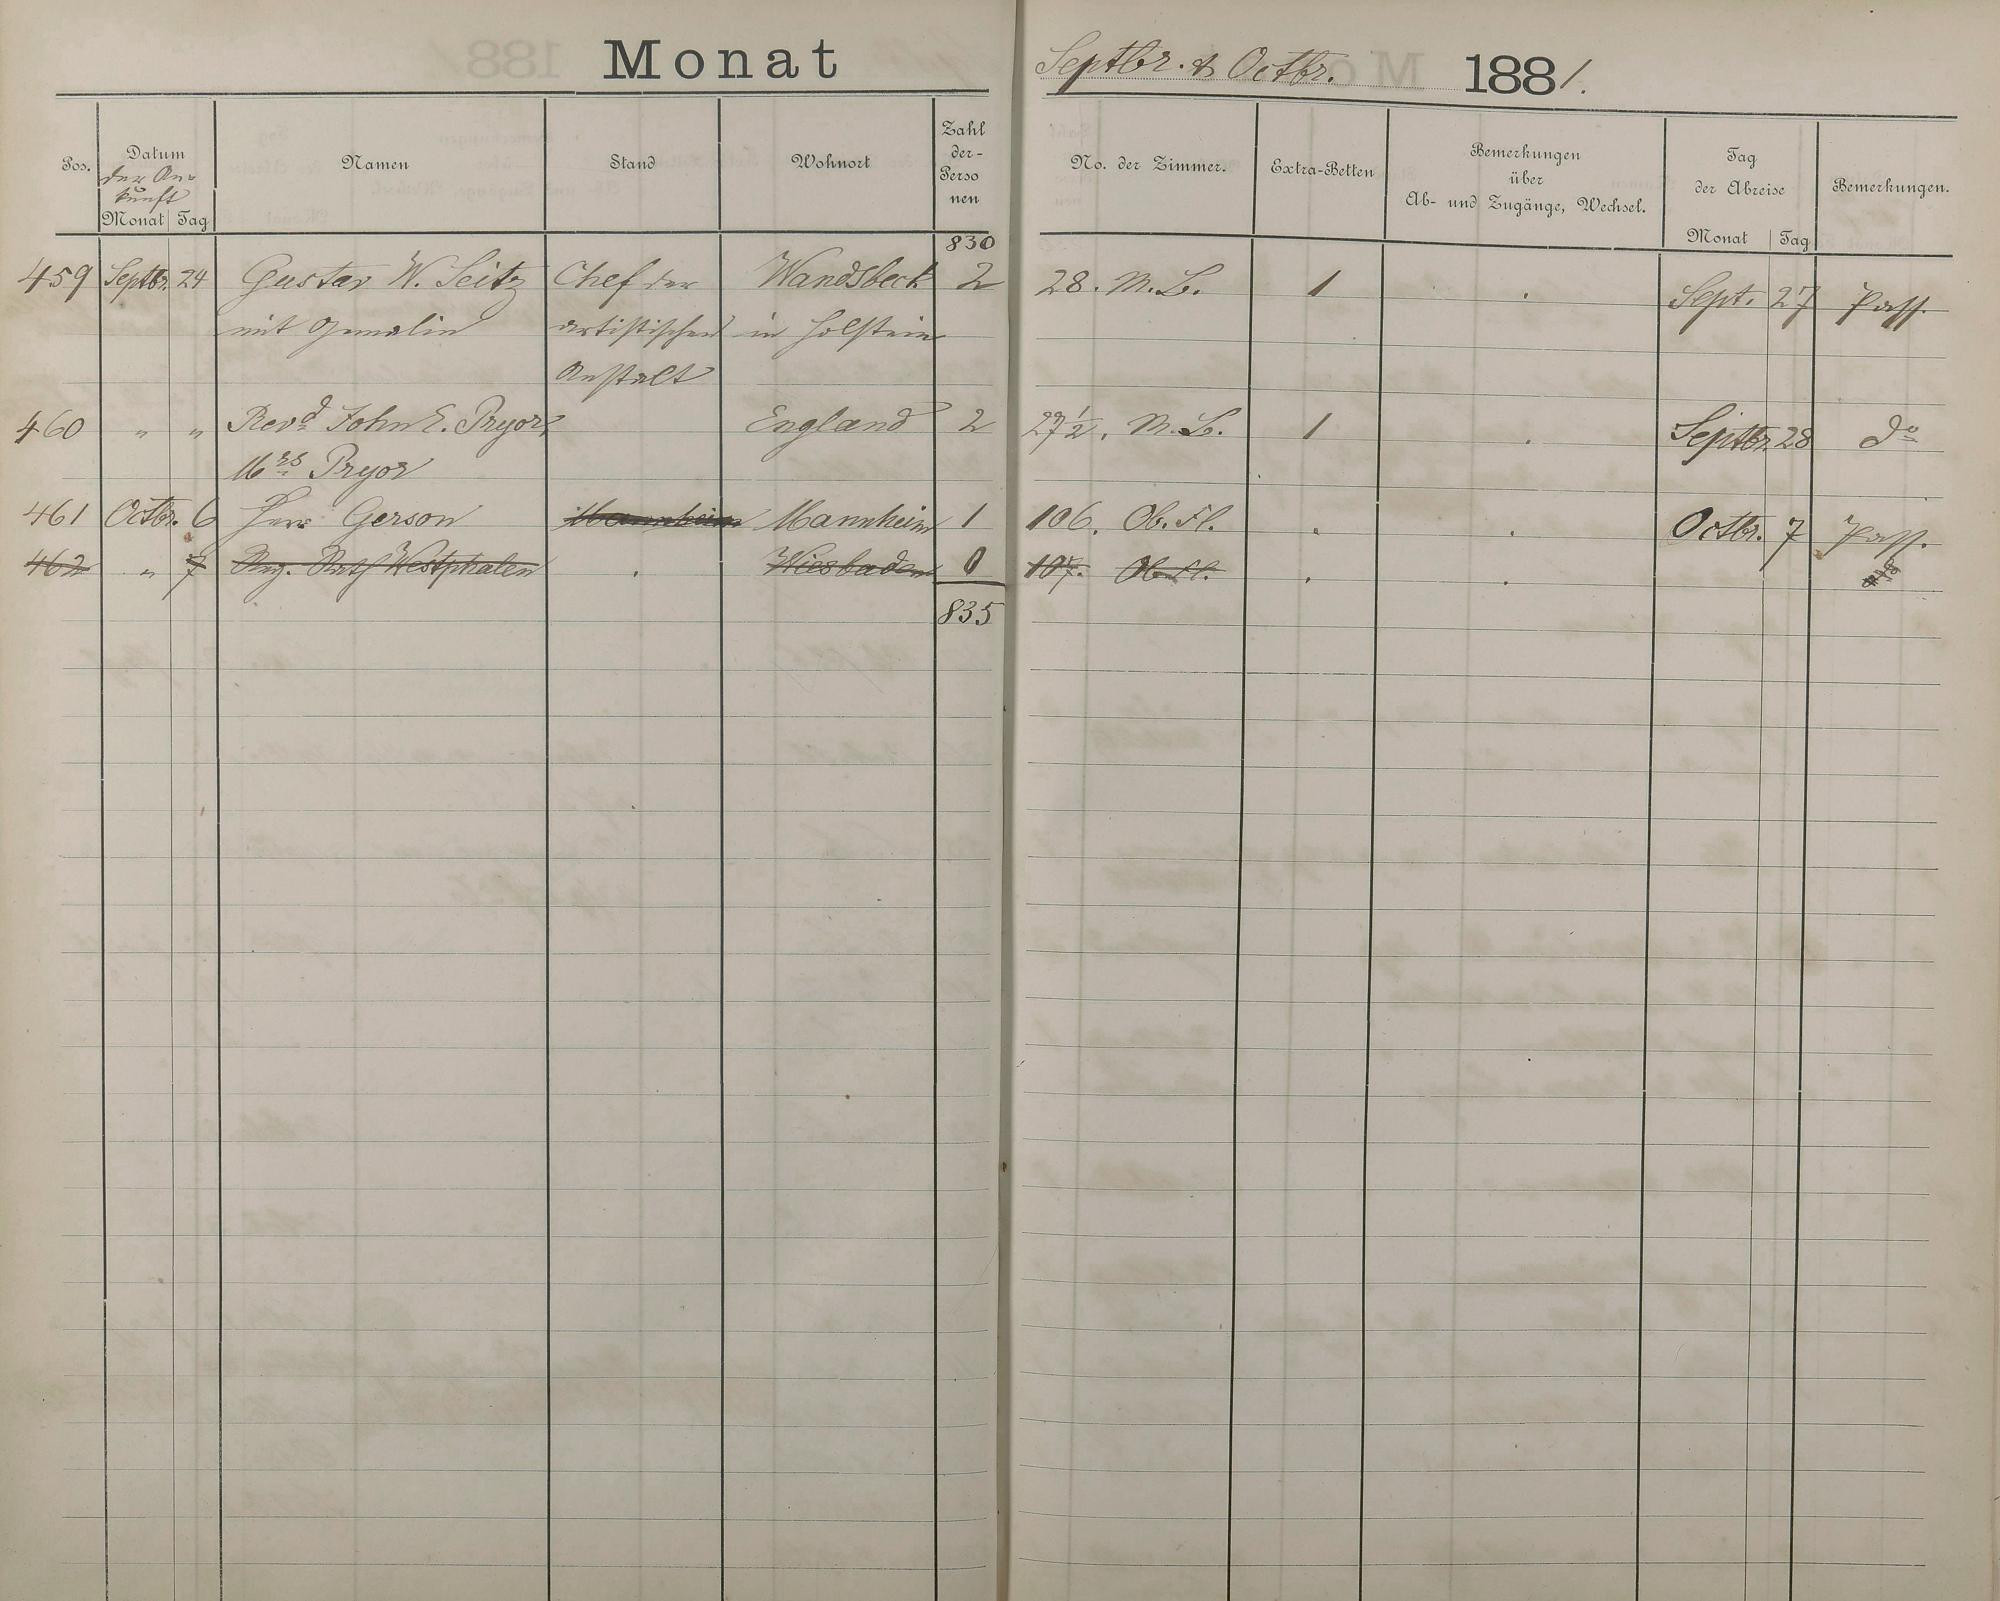 Monat Septbr. & Octbr. 1881.
Pos. Datum der Ankunft Monat Tag Namen Stand Wohnort Zahl der Personen No. der Zimmer. Extra-Betten Bemerkungen über Ab- und Zugänge, Wechsel. Tag der Abreise Monat Tag Bemerkungen.
830
459 Septbr. 24 Gustav W. Seitz Chef der Wandsbeck 2 28. M.B. 1 . Sept. 27 Pass.
mit Gemalin artistischen in Holstein
Anstalt
460 " " Revd John E. Pryor, England 2 27 1/2. M.B. 1 . Septbr. 28 do
Mrs Pryor
461 Octbr. 6 Herr Gerson Mannheim Mannheim 1 106. Ob. Fl. . . Octbr. 7 Pass.
462 " 7 Reg. Rath Westphalen . Wiesbaden 0 107. Ob. Fl. . . do
835